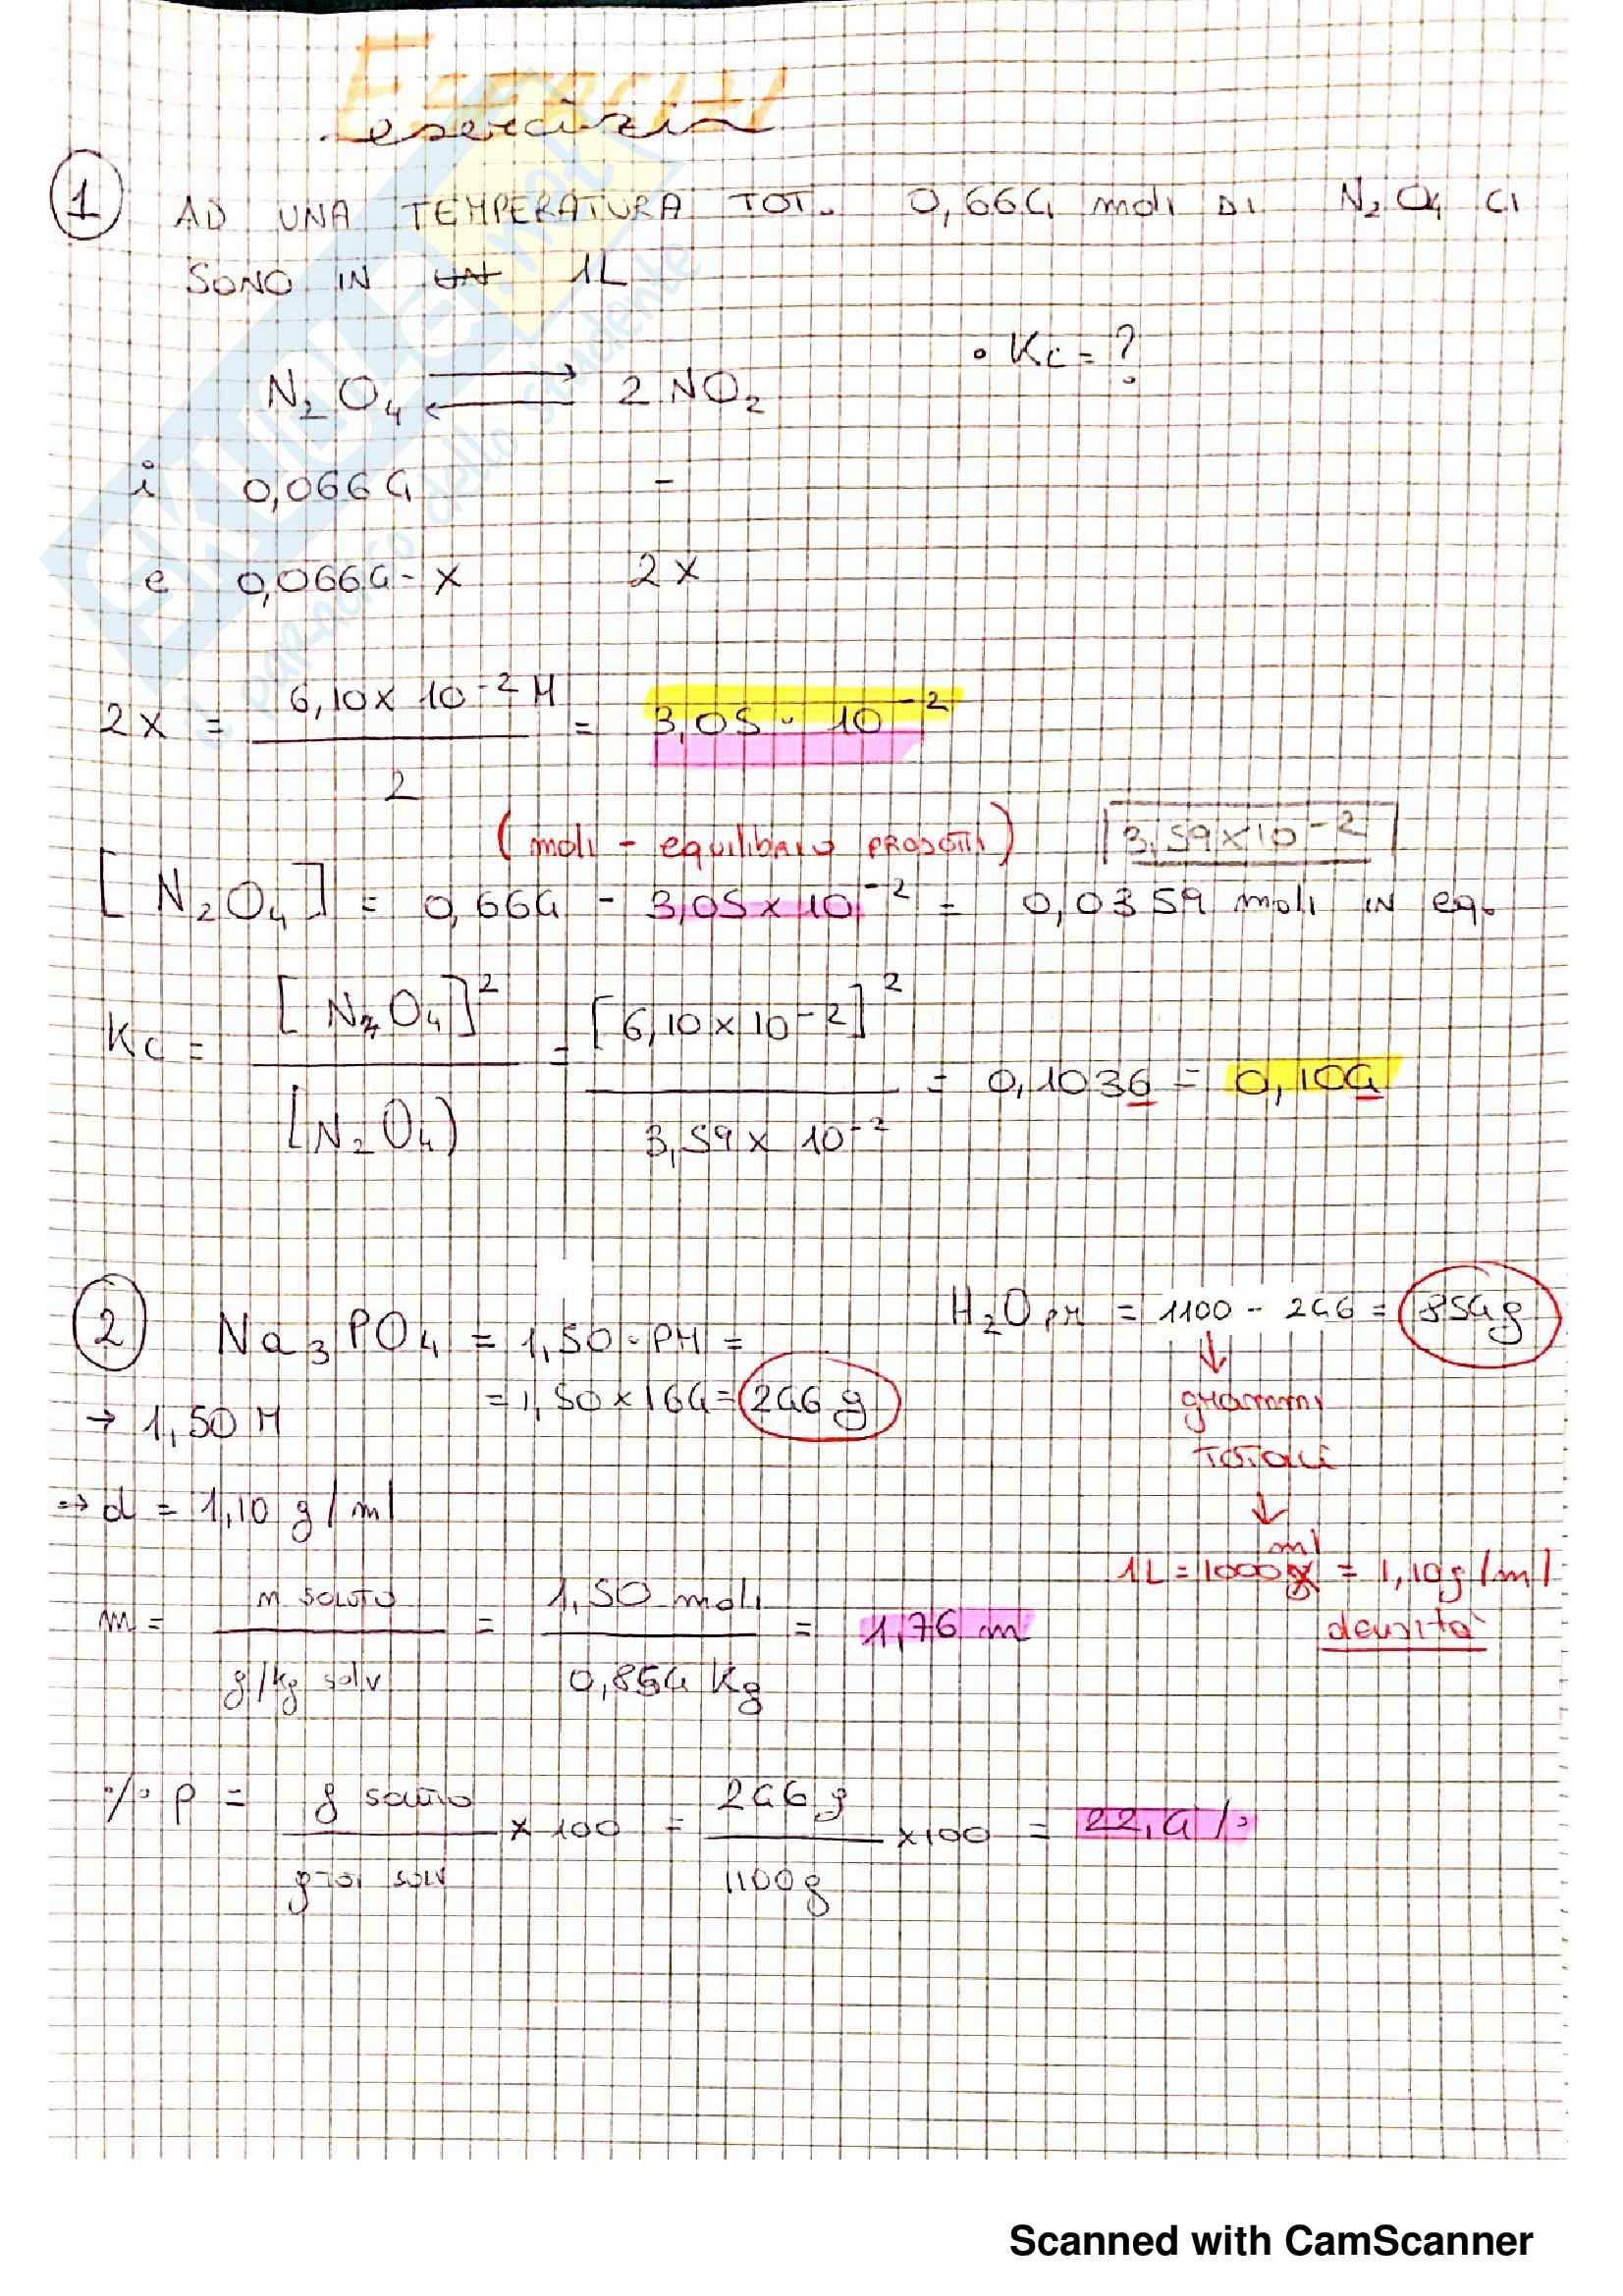 Esercizi
esercizi
1 AD UNA TEMPERATURA TOT. 0,664 moli DI N₂O₄ CI
SONO IN UN 1L
• Kc = ?
N₂O₄ ⇄ 2 NO₂
i 0,0664 -
e 0,0664 - x 2x
2x = 6,10 x 10⁻² M / 2 = 3,05 · 10⁻²
(moli - equilibrio prodotti) 3,59 x 10⁻²
[N₂O₄] = 0,664 - 3,05 x 10⁻² = 0,0359 moli IN eq.
Kc = [N₂O₄]² / [N₂O₄) = [6,10 x 10⁻²]² / 3,59 x 10⁻² = 0,1036 = 0,104
2 Na₃PO₄ = 1,50 · PM =
= 1,50 x 164 = 246 g
H₂O PM = 1100 - 246 = 854g
↓
grammi
TOTALI
↓
1L = 1000 ml = 1,10g/ml
densità
→ 1,50 M
⇒ d = 1,10 g/ml
m = n soluto / g/kg solv = 1,50 moli / 0,854 Kg = 1,76 m
% p = g soluto / g TOT solv x 100 = 246 g / 1100g x 100 = 22,4 %
Scanned with CamScanner
SKUOLA.net
il paradiso dello studente